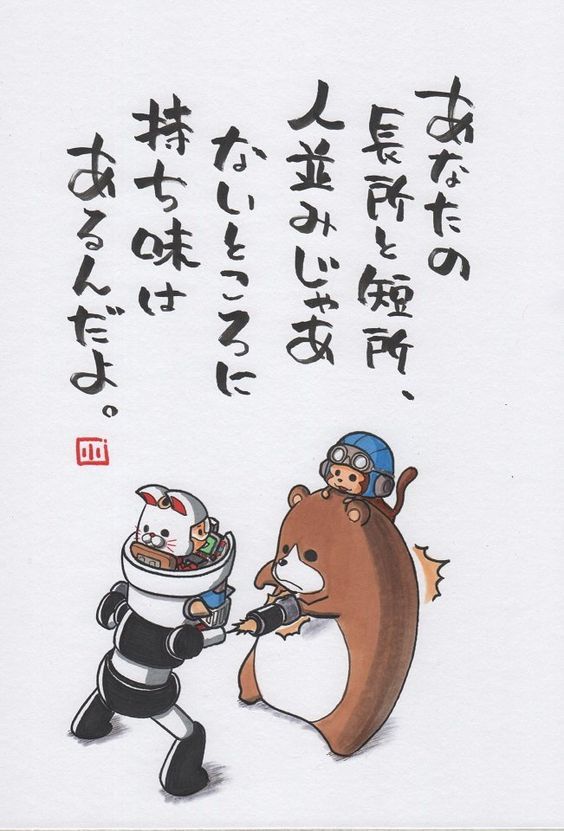 あなたの
長所と短所、
人並みじゃあ
ないところに
持ち味は
あるんだよ。